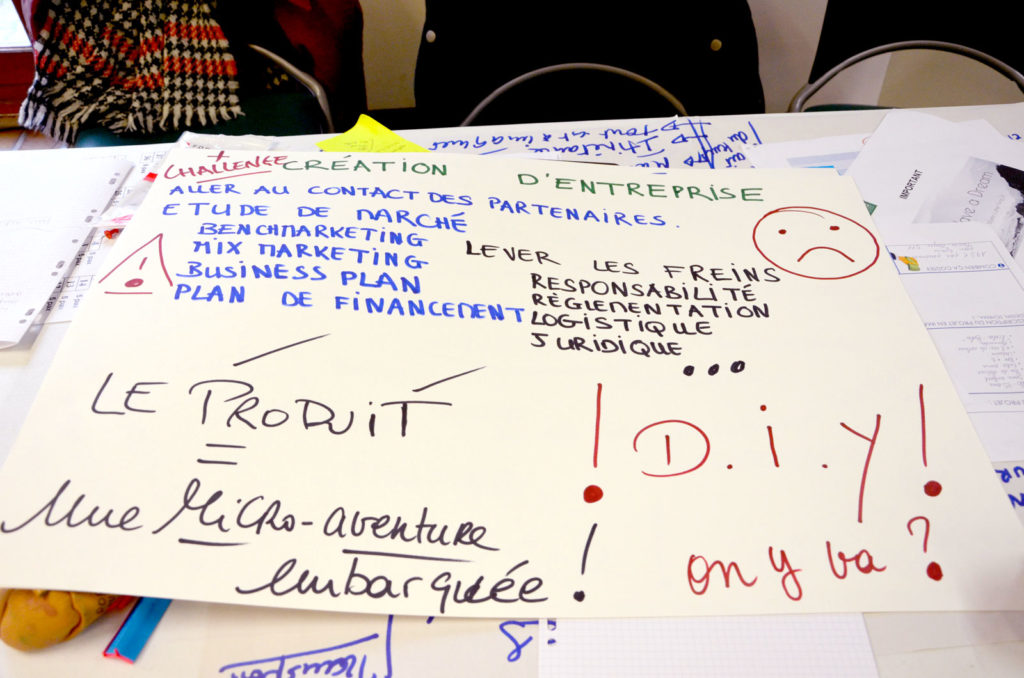 +
CHALLENGE CRÉATION D'ENTREPRISE
ALLER AU CONTACT DES PARTENAIRES.
ETUDE DE MARCHÉ
BENCHMARKETING
MIX MARKETING
BUSINESS PLAN
PLAN DE FINANCEMENT
!
LEVER LES FREINS
RESPONSABILITÉ
RÈGLEMENTATION
LOGISTIQUE
JURIDIQUE
...
LE PRODUIT
=
Une Micro-aventure
embarquée !
! D.i.y !
on y va ?
IMPORTANT
ave a Dream
tout est à imaginer
Itinérance